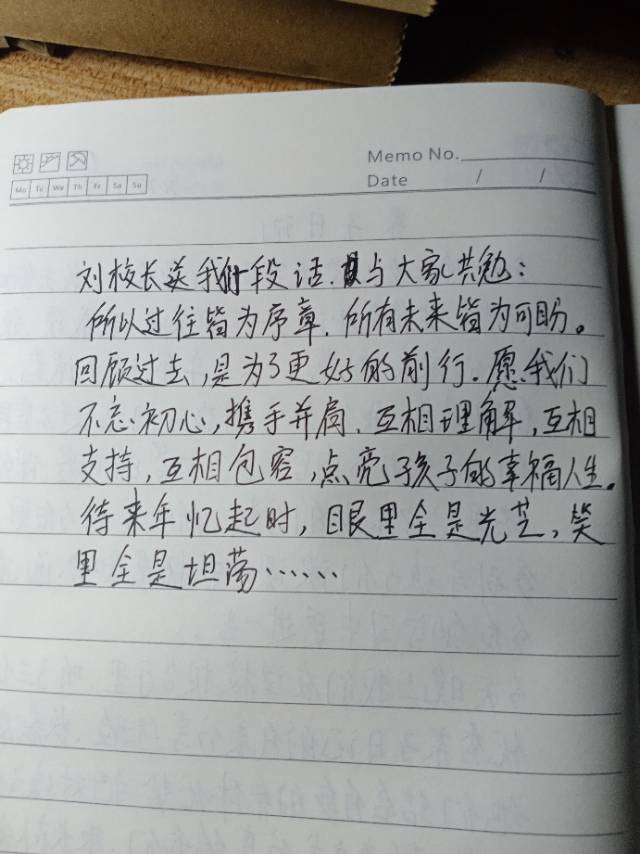 Memo No.
Mo Tu We Th Fr Sa Su
Date / /
刘校长送我们段话.与大家共勉：
所以过往皆为序章.所有未来皆为可盼。
回顾过去,是为了更好的前行.愿我们
不忘初心,携手并肩.互相理解,互相
支持,互相包容,点亮孩子的幸福人生。
待来年忆起时,眼里全是光芒,笑
里全是坦荡……